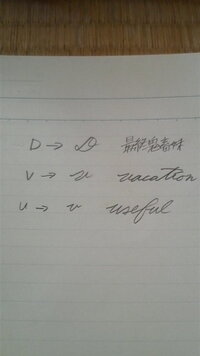 D → D 最終鬼畜妹
V → v vacation
u → u useful